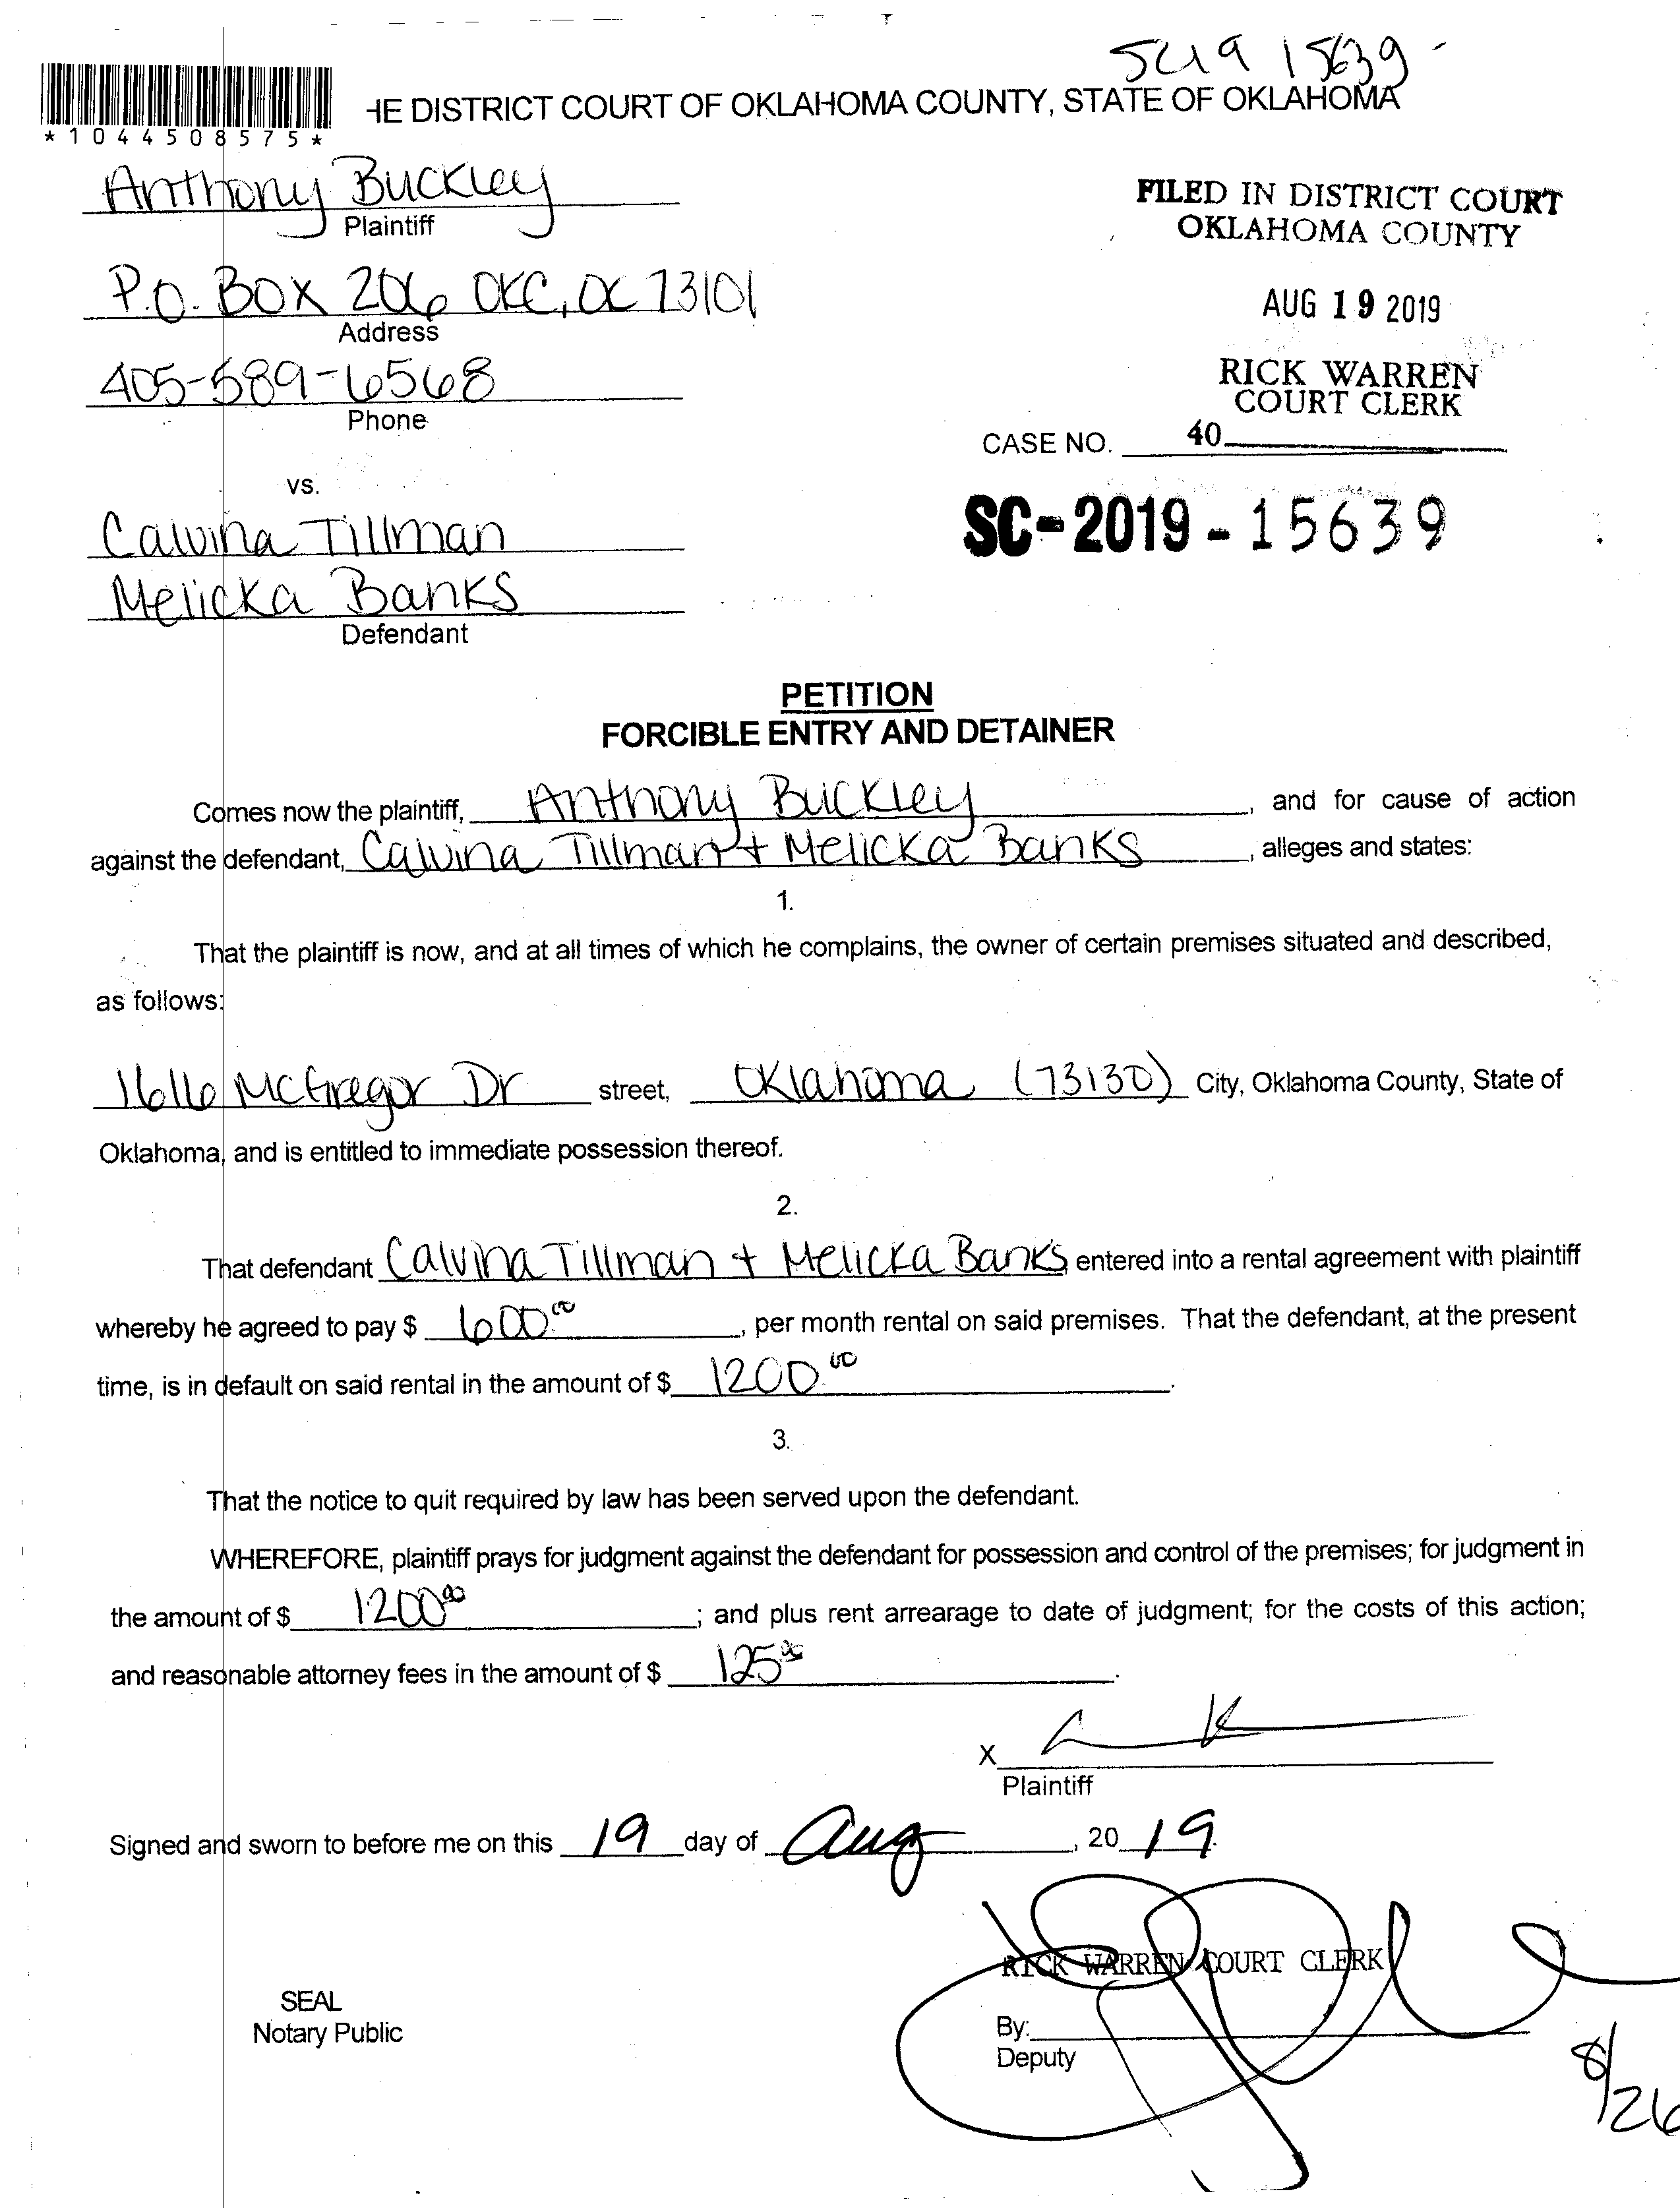 SC19 15639
*1044508575*
HE DISTRICT COURT OF OKLAHOMA COUNTY, STATE OF OKLAHOMA
Anthony Buckley
Plaintiff
FILED IN DISTRICT COURT
OKLAHOMA COUNTY
P.O. Box 206 OKC, OK 73101
Address
AUG 19 2019
405-589-6568
Phone
RICK WARREN
COURT CLERK
CASE NO. 40
vs.
SC-2019-15639
Calvina Tillman
Melicka Banks
Defendant
PETITION
FORCIBLE ENTRY AND DETAINER
Comes now the plaintiff, Anthony Buckley, and for cause of action
against the defendant, Calvina Tillman + Melicka Banks, alleges and states:
1.
That the plaintiff is now, and at all times of which he complains, the owner of certain premises situated and described,
as follows:
1616 McGregor Dr street, Oklahoma (73130) City, Oklahoma County, State of
Oklahoma, and is entitled to immediate possession thereof.
2.
That defendant Calvina Tillman + Melicka Banks entered into a rental agreement with plaintiff
whereby he agreed to pay $ 600.00, per month rental on said premises. That the defendant, at the present
time, is in default on said rental in the amount of $ 1200.00.
3.
That the notice to quit required by law has been served upon the defendant.
WHEREFORE, plaintiff prays for judgment against the defendant for possession and control of the premises; for judgment in
the amount of $ 1200.00; and plus rent arrearage to date of judgment; for the costs of this action;
and reasonable attorney fees in the amount of $ 125.00.
X
Plaintiff
Signed and sworn to before me on this 19 day of Aug, 2019.
RICK WARREN COURT CLERK
SEAL
Notary Public
By:
Deputy
8/26